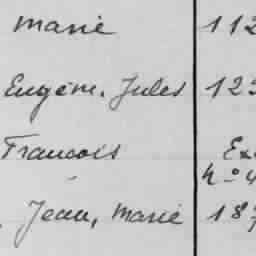 Marie 112
Eugèn. Jules 12
Francois Ex
n° 4
Jean, Marie 18